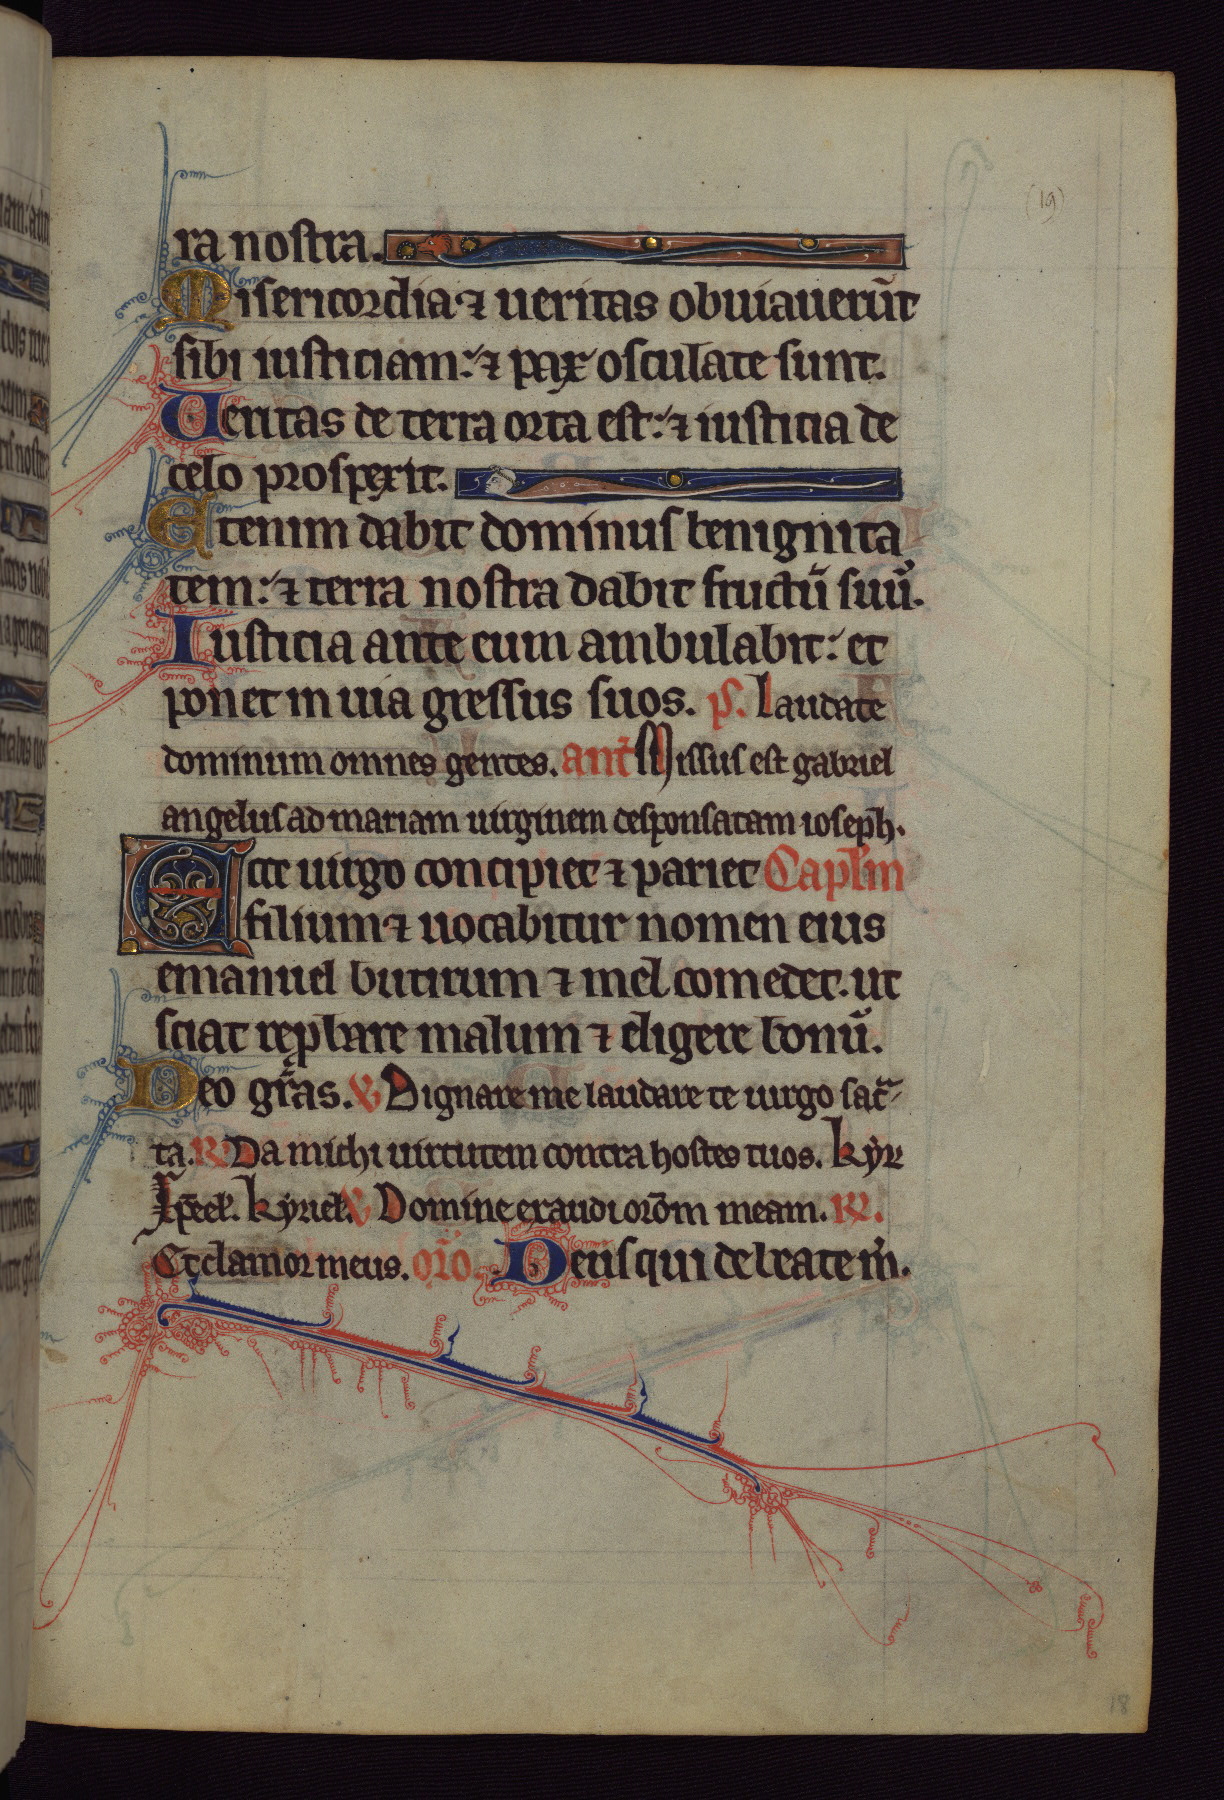 (19)
ra nostra.
Misericordia ⁊ ueritas obuiauerūt
sibi iusticiam: ⁊ pax osculate sunt.
Ueritas de terra orta est: ⁊ iusticia de
celo prospexit.
Etenim dabit dominus benignita
tem: ⁊ terra nostra dabit fructū suū.
Iusticia ante eum ambulabit: et
ponet in uia gressus suos. p̄s. Laudate
dominum omnes gentes. ant̄ Missus est gabriel
angelus ad mariam uirginem desponsatam ioseph.
Ecce uirgo concipiet ⁊ pariet Capłm
filium ⁊ uocabitur nomen eius
emanuel butirum ⁊ mel comedet. ut
sciat reꝓbare malum ⁊ eligere bonū.
Deo gr̄as. ℣ Dignare me laudare te uirgo sac̄
ta. ℞ Da michi uirtutem contra hostes tuos. kyr̄
xp̄eeł. kyrieł. ℣ Domine exaudi orōm meam. ℞.
Et clamor meus. orō. Deus qui de beate m̄.
18